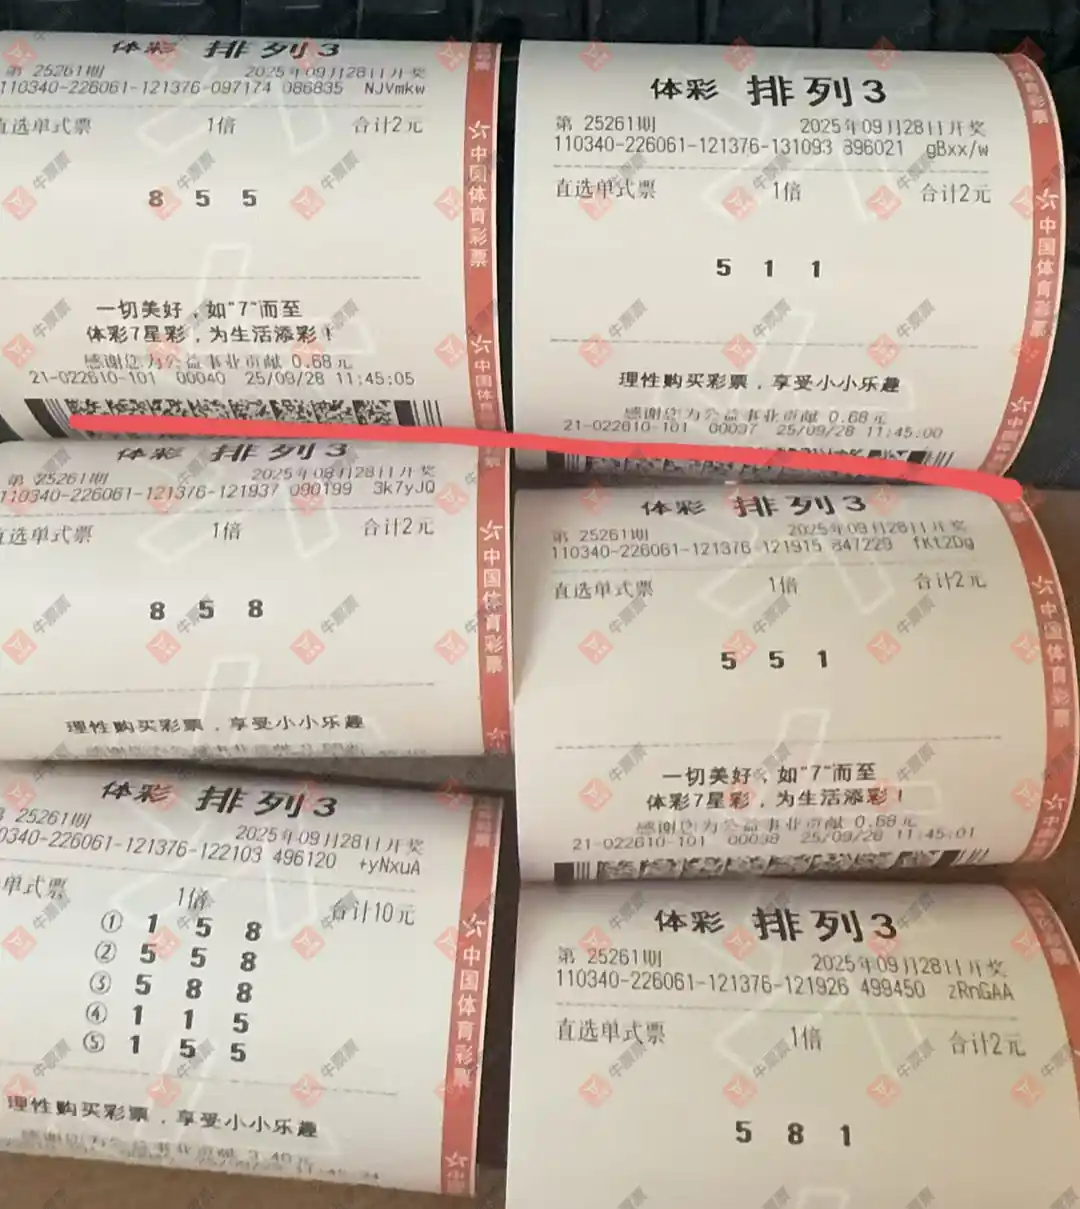 体彩 排列3
第 25261期 2025年09月28日开奖
110340-226061-121376-097174 086835 NJVmkw
直选单式票 1倍 合计2元
8 5 5
一切美好，如"7"而至
体彩7星彩，为生活添彩！
感谢您为公益事业贡献 0.68元
21-022610-101 00040 25/09/28 11:45:05
中国体育彩票
中国体育
体彩 排列3
第 25261期 2025年09月28日开奖
110340-226061-121376-131093 896021 gBxx/w
直选单式票 1倍 合计2元
5 1 1
理性购买彩票，享受小小乐趣
感谢您为公益事业贡献 0.68元
21-022610-101 00037 25/09/28 11:45:00
中国体育彩票
体彩 排列3
第 25261期 2025年09月28日开奖
110340-226061-121376-121937 090199 3k7yJQ
直选单式票 1倍 合计2元
8 5 8
理性购买彩票，享受小小乐趣
中国体育彩票
体彩 排列3
第 25261期 2025年09月28日开奖
110340-226061-121376-121915 847229 fKt2Dg
直选单式票 1倍 合计2元
5 5 1
一切美好，如"7"而至
体彩7星彩，为生活添彩！
感谢您为公益事业贡献 0.68元
21-022610-101 00038 25/09/28 11:45:01
中国体育彩票
体彩 排列3
25261期 2025年09月28日开奖
0340-226061-121376-122103 496120 +yNxuA
单式票 1倍 合计10元
① 1 5 8
② 5 5 8
③ 5 8 8
④ 1 1 5
⑤ 1 5 5
理性购买彩票，享受小小乐趣
感谢您为公益事业贡献 3.40元
中国体育彩票
体彩 排列3
第 25261期 2025年09月28日开奖
110340-226061-121376-121926 499450 zRnGAA
直选单式票 1倍 合计2元
5 8 1
牛票票